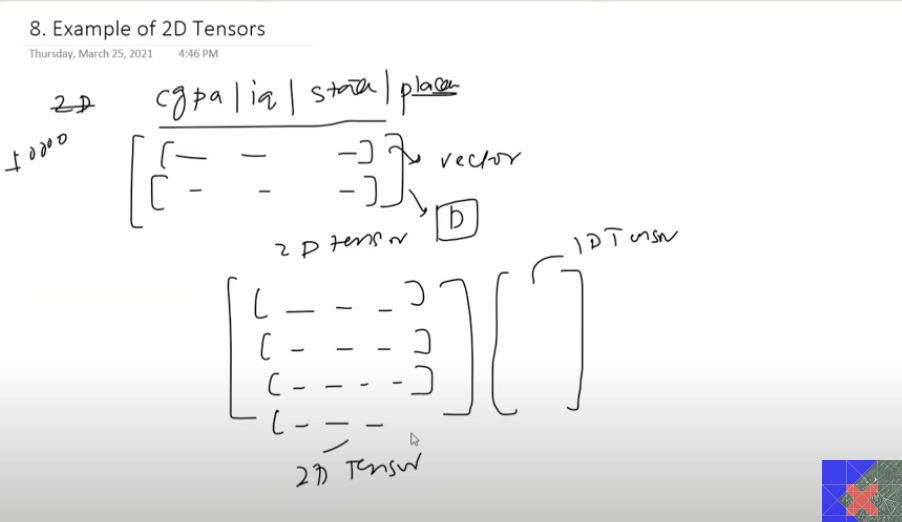 8. Example of 2D Tensors
Thursday, March 25, 2021 4:46 PM
2D cgpa | iq | state | place
10000
vector
D
2D tensor
1D Tensor
2D Tensor